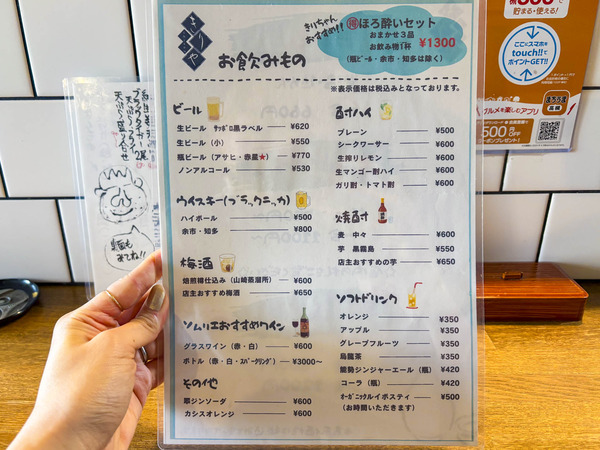 きりちゃん
おすすめ!!
得ほろ酔いセット
おまかせ3品
お飲み物1杯 ¥1300
(瓶ビール・余市・知多は除く)
お飲みもの
※表示価格は税込みとなっております。
ビール
生ビール サッポロ黒ラベル ¥620
生ビール(小) ¥550
瓶ビール(アサヒ・赤星★) ¥770
ノンアルコール ¥530
ウイスキー(ブラックニッカ)
ハイボール ¥500
余市・知多 ¥800
梅酒
焙煎樽仕込み(山崎蒸溜所) ¥600
店主おすすめ梅酒 ¥650
ソムリエおすすめワイン
グラスワイン(赤・白) ¥600
ボトル(赤・白・スパークリング) ¥3000〜
その他
翠ジンソーダ ¥600
カシスオレンジ ¥600
酎ハイ
プレーン ¥500
シークワーサー ¥600
生搾りレモン ¥600
生マンゴー酎ハイ ¥600
ガリ酎・トマト酎 ¥600
焼酎
麦 中々 ¥600
芋 黒霧島 ¥550
店主おすすめの芋 ¥650
ソフトドリンク
オレンジ ¥350
アップル ¥350
グレープフルーツ ¥350
烏龍茶 ¥350
能勢ジンジャーエール(瓶) ¥420
コーラ(瓶) ¥420
オーガニックルイボスティ ¥500
(お時間いただきます)
貯まる・使える!
ここにスマホを
touch!!
ポイントGET!!
グルメを楽しむアプリ
500円
OFF
ーポンプレゼント!
裏も
みてね!!